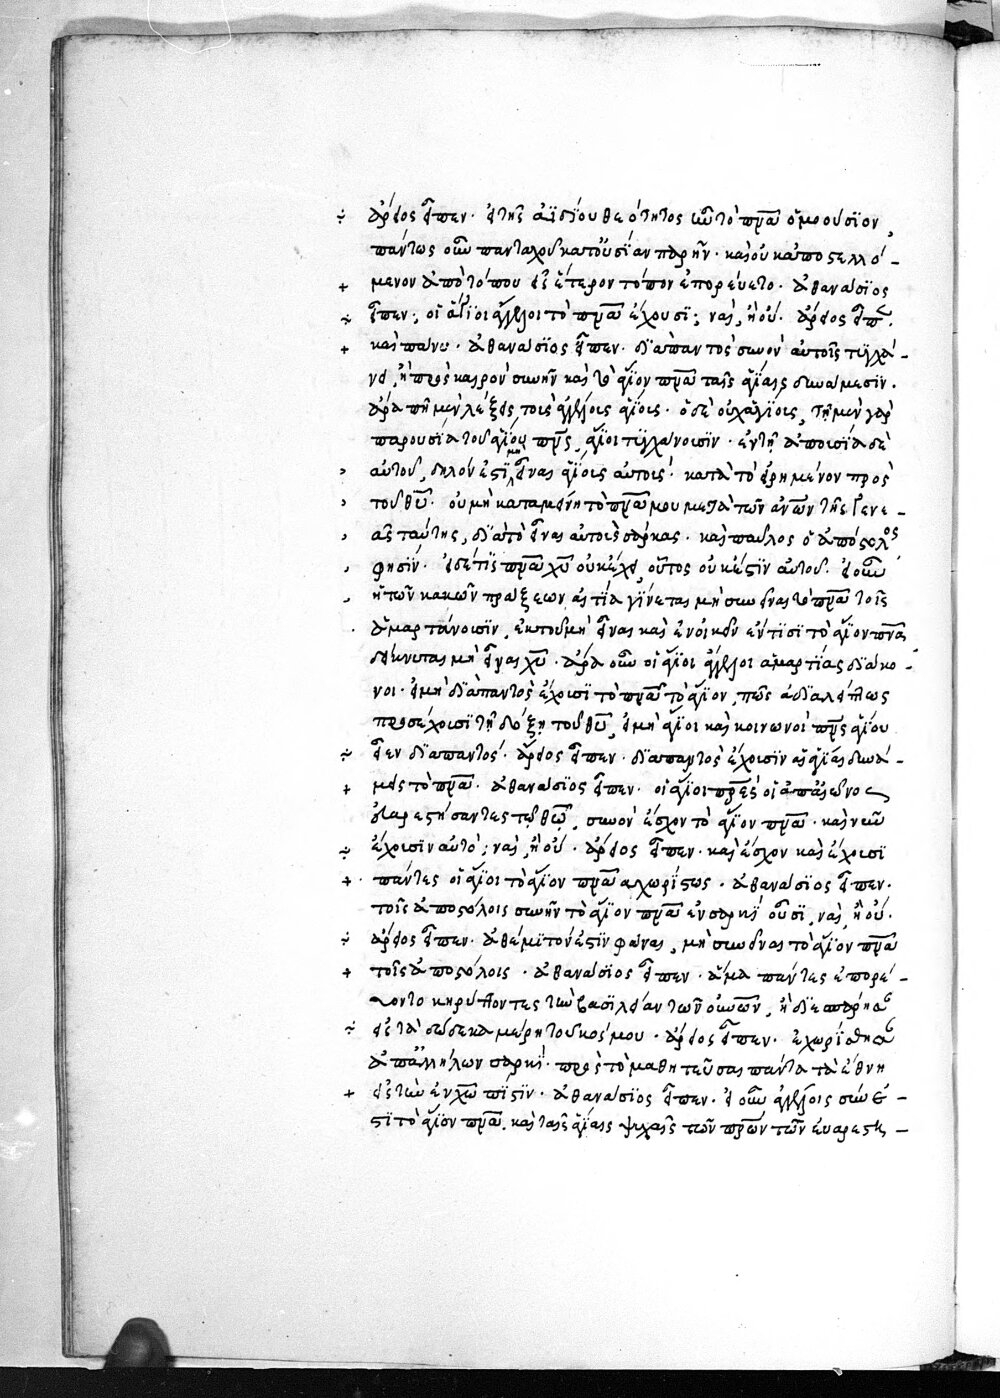 ἄρειος εἶπεν· εἰ τῆς ἀϊδίου θεότητος ὂν τὸ πνᾶ ὁμοούσιον,
πάντως οὖν πανταχοῦ κατουσίαν παρῆν· καὶ οὐκ ἀποστελλό –
+ μενον ἀπὸ τόπου εἰς ἕτερον τόπον ἐπορεύετο· ἀθανάσιος
εἶπεν· οἱ ἅγιοι ἄγγελοι τὸ πνᾶ ἔχουσι; ναὶ, ἢ οὔ· ἄρειος εἶπ·
+ καὶ πάνυ· ἀθανάσιος εἶπεν· διαπαντὸς συνὸν αὐτοῖς τυγχά –
νει, ἢ πρὸς καιρὸν συνῆν καὶ τὸ ἅγιον πνᾶ ταῖς ἁγίαις δυνάμεσιν·
ἄρα πῆ μὲν λέξεις τοῖς ἀγγέλοις ἁγίοις· ὁ δὲ οὐχ ἁγίοις, τῆ μὲν γὰρ
παρουσία τοῦ ἁγίου πνς, ἅγιοι τυγχάνουσιν· ἐν τῆ ἀπουσία δὲ
αὐτοῦ, δηλονότι μὴ εἶναι ἁγίοις αὐτοῖς· κατὰ τὸ εἰρημένον πρὸς
τοῦ θῦ· οὐ μὴ καταμείνη τὸ πνᾶ μου μετὰ τῶν ἀνων τῆς γενε –
ᾶς ταύτης, διὰ τὸ εἶναι αὐτοὺς σάρκας· καὶ παῦλος ὁ ἀπόστολος
φησὶν· εἰ δέ τις πνᾶ χῦ οὐκ ἔχει, οὗτος οὐκ ἔστιν αὐτοῦ· εἰ οὖν
ἡ τῶν κακῶν πράξεων αἰτία γίνεται μὴ συνεῖναι τὸ πνᾶ τοῖς
ἁμαρτάνουσιν, ἐκ τοῦ μὴ εἶναι καὶ ἐνοικεῖν ἐν τισὶ τὸ ἅγιον πνᾶ
δείκνυται μὴ εἶναι χῦ· ἄρα οὖν οἱ ἅγιοι ἄγγελοι ἁμαρτίας διάκο –
νοι· εἰ μὴ διαπαντὸς ἔχουσι τὸ πνᾶ τὸ ἅγιον, πῶς ἀδιαλείπτως
προσέχουσι τῆ δόξη τοῦ θῦ, εἰ μὴ ἅγιοι καὶ κοινωνοὶ πνς ἁγίου
εἶεν διαπαντός· ἄρειος εἶπεν· διαπαντὸς ἔχουσιν αἱ ἅγιαι δυνά –
+ μεις τὸ πνᾶ· ἀθανάσιος εἶπεν· οἱ ἅγιοι πρες οἱ ἀπ᾽ αἰῶνος
εὐαρεστήσαντες τῶ θῶ, συνὸν ἔσχον τὸ ἅγιον πνᾶ· καὶ νῦν
ἔχουσιν αὐτό; ναὶ, ἢ οὔ· ἄρειος εἶπεν· καὶ ἔσχον καὶ ἔχουσι
+ πάντες οἱ ἅγιοι τὸ ἅγιον πνᾶ ἀχωρίστως· ἀθανάσιος εἶπεν·
τοῖς ἀποστόλοις συνῆν τὸ ἅγιον πνᾶ ἐν σαρκὶ οὖσι, ναὶ, ἢ οὔ·
ἄρειος εἶπεν· ἀθέμιτόν ἐστιν φάναι, μὴ συνεῖναι τὸ ἅγιον πνᾶ
+ τοῖς ἀποστόλοις· ἀθανάσιος εἶπεν· ἅμα πάντες ἐπορεύ –
οντο κηρύττοντες τὴν βασιλείαν τῶν οὐνῶν, ἢ διεσπάρησαν
εἰς τὰ δώδεκα μέρη τοῦ κόσμου· ἄρειος εἶπεν· ἐχωρίσθησαν
ἀπαλλήλων σαρκὶ· πρὸς τὸ μαθητεῦσαι πάντα τὰ ἔθνη
+ εἰς τὴν ἐν χῶ πίστιν· ἀθανάσιος εἶπεν· εἰ οὖν ἀγγέλοις σύνε –
στι τὸ ἅγιον πνᾶ, καὶ ταῖς ἁγίαις ψυχαῖς τῶν πρων τῶν εὐαρεστη –